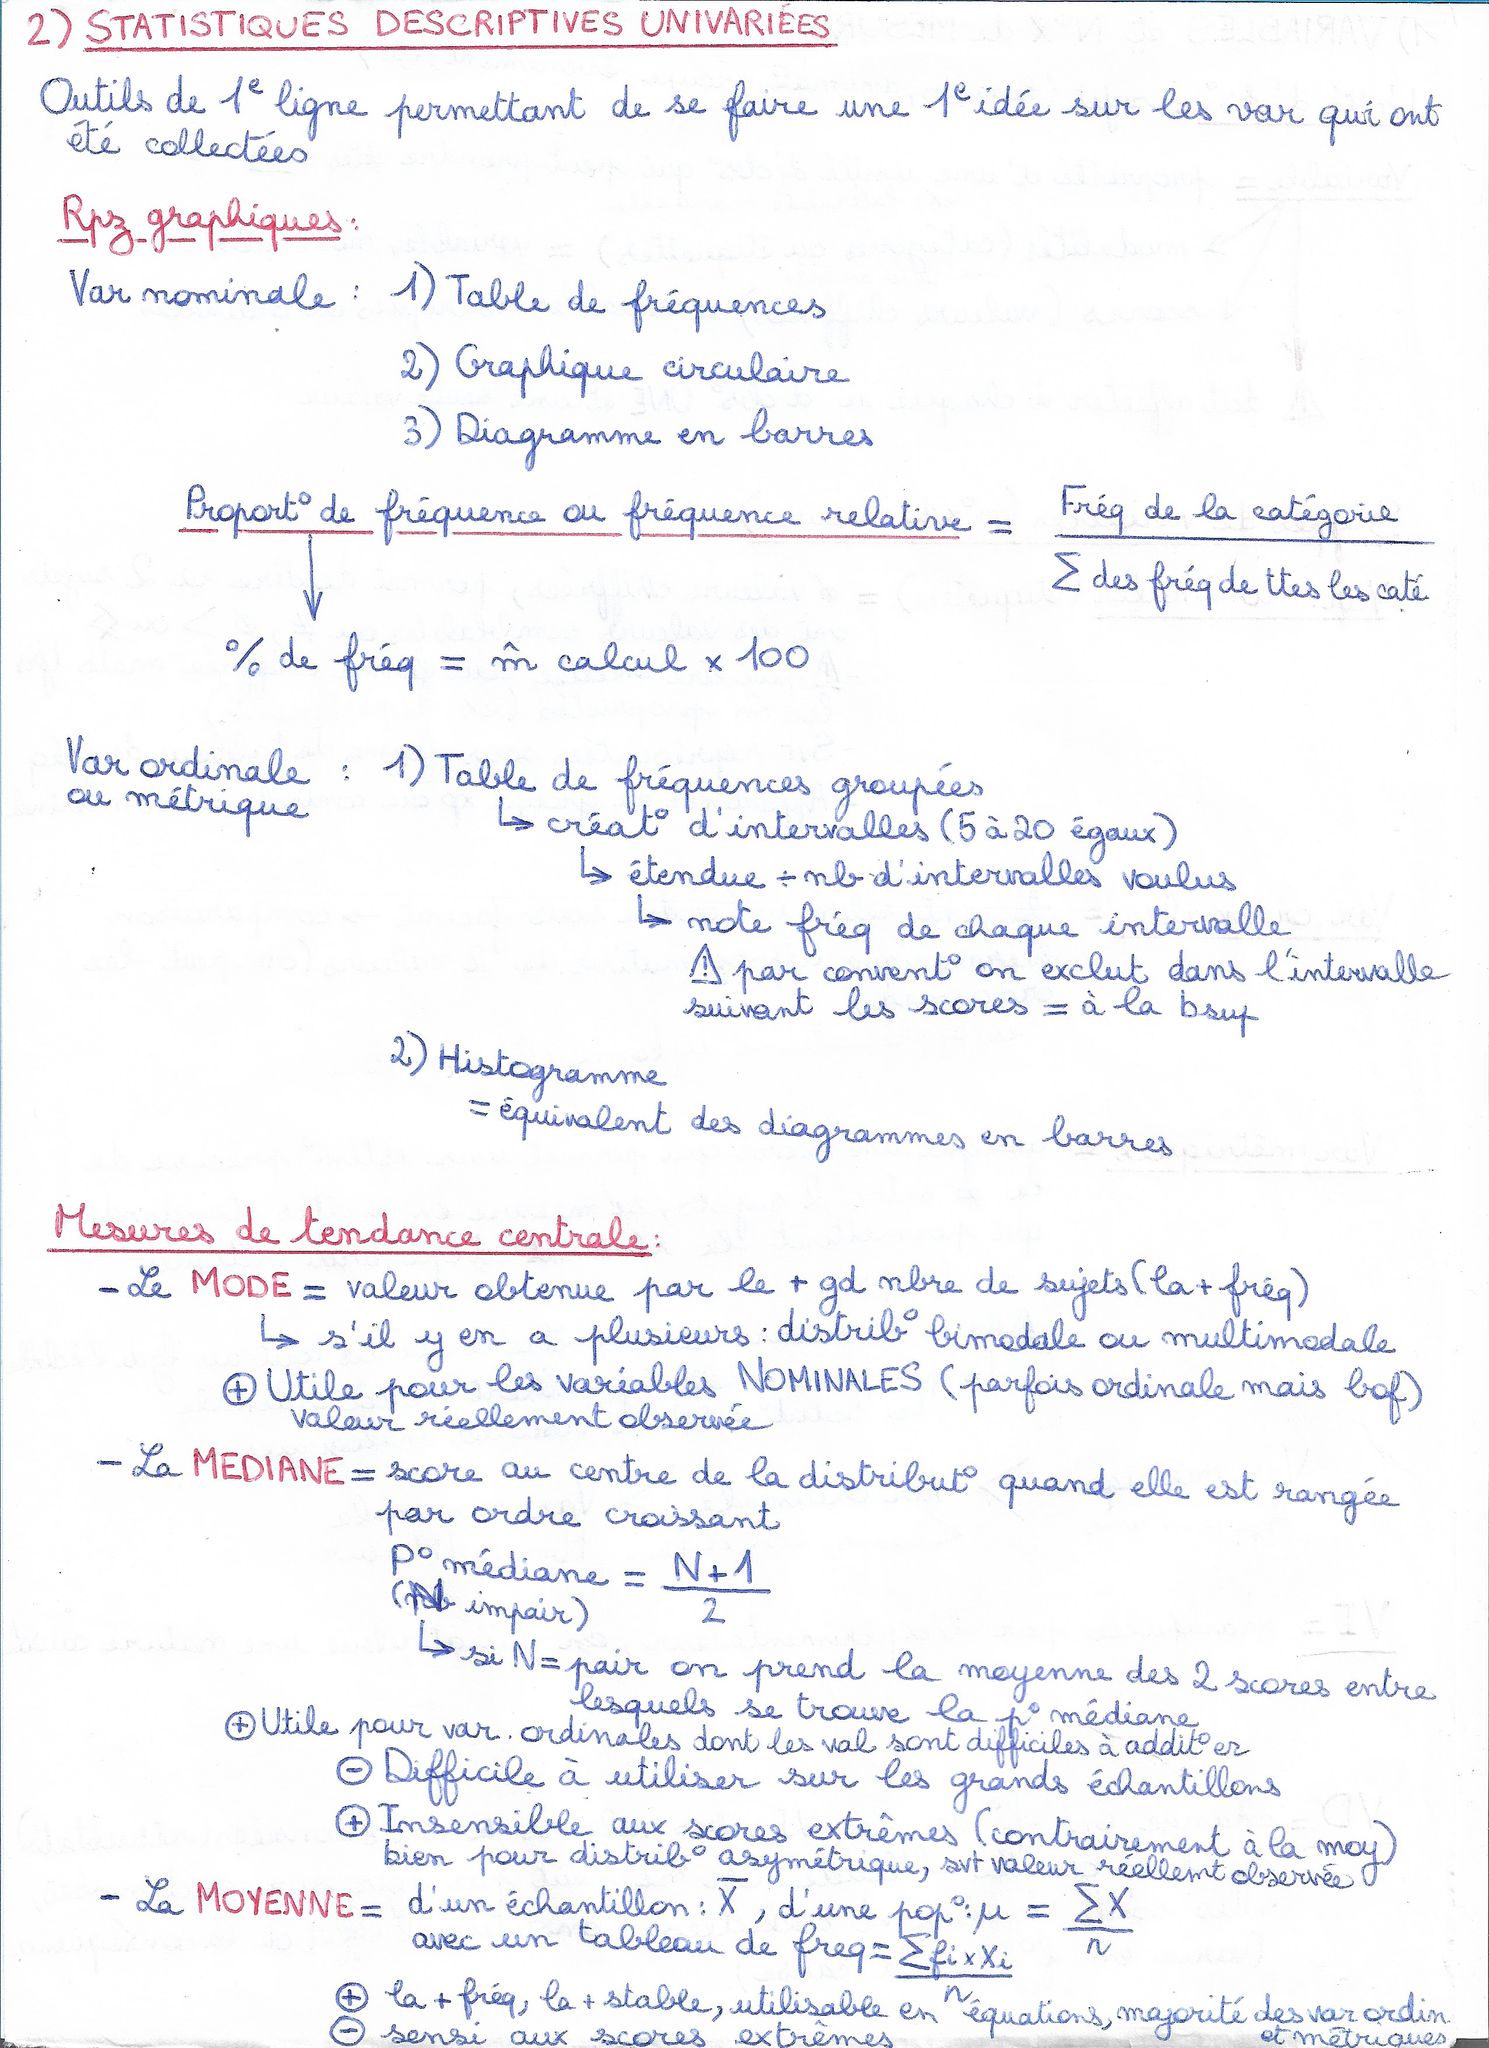 2) STATISTIQUES DESCRIPTIVES UNIVARIÉES
Outils de 1e ligne permettant de se faire une 1e idée sur les var qui ont
été collectées
Rpz graphiques :
Var nominale : 1) Table de fréquences
2) Graphique circulaire
3) Diagramme en barres
Proport° de fréquence ou fréquence relative = Fréq de la catégorie
Σ des fréq de ttes les caté
% de fréq = m̂ calcul × 100
Var ordinale : 1) Table de fréquences groupées
ou métrique
↳ créat° d'intervalles (5 à 20 égaux)
↳ étendue ÷ nb d'intervalles voulus
↳ note fréq de chaque intervalle
⚠ par convent° on exclut dans l'intervalle
suivant les scores = à la bsup
2) Histogramme
= équivalent des diagrammes en barres
Mesures de tendance centrale :
- Le MODE = valeur obtenue par le + gd nbre de sujets (la + fréq)
↳ s'il y en a plusieurs : distrib° bimodale ou multimodale
⊕ Utile pour les variables NOMINALES (parfois ordinale mais bof)
valeur réellement observée
- La MEDIANE = score au centre de la distribut° quand elle est rangée
par ordre croissant
P° médiane = N+1
(N impair) 2
↳ si N = pair on prend la moyenne des 2 scores entre
lesquels se trouve la p° médiane
⊕ Utile pour var. ordinales dont les val sont difficiles à addit°er
⊖ Difficile à utiliser sur les grands échantillons
⊕ Insensible aux scores extrêmes (contrairement à la moy)
bien pour distrib° asymétrique, svt valeur réellemt observée
- La MOYENNE = d'un échantillon : X̄, d'une pop° : μ = ΣX
n
avec un tableau de freq = Σfi×Xi
n
⊕ la + fréq, la + stable, utilisable en équations, majorité des var ordin
et métriques
⊖ sensi aux scores extrêmes